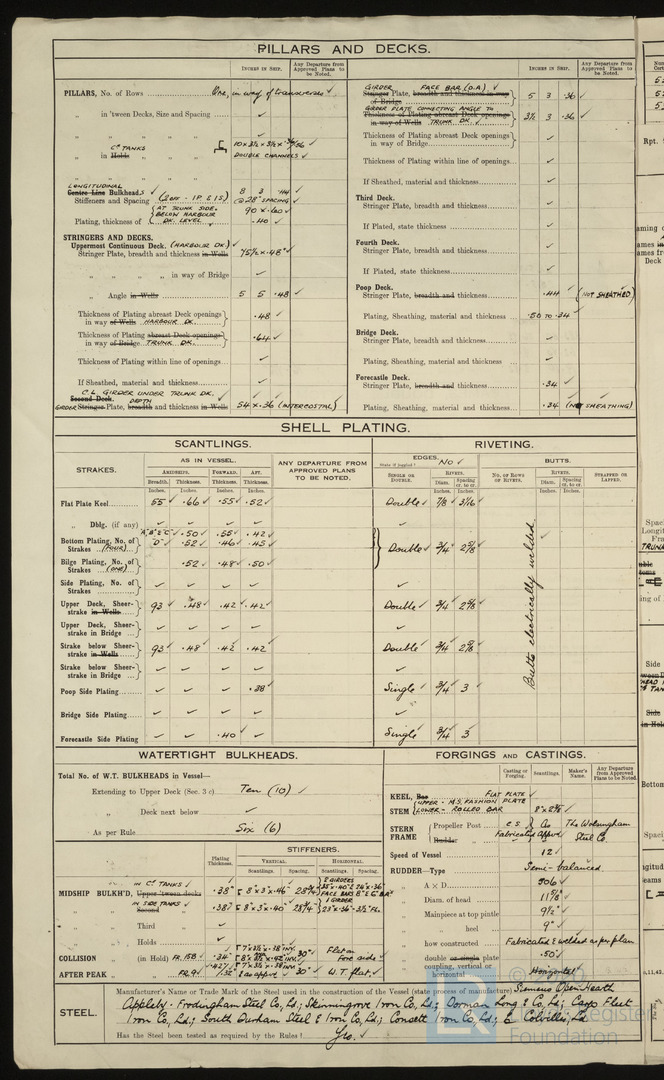 PILLARS AND DECKS.
INCHES IN SHIP.
Any Departure from Approved Plans to be Noted.
PILLARS, No. of Rows One, in way of transverses ✓
in 'tween Decks, Size and Spacing ✓
" " " ✓
" in Holds Cᵒ TANKS " "
DOUBLE CHANNELS ✓
LONGITUDINAL
Centre Line Bulkheads ✓
Stiffeners and Spacing (2 OFF - 1P. & 1S) 8 3 .44 @ 28" SPACING ✓
Plating, thickness of {AT TRUNK SIDE. BELOW HARBOUR DK. LEVEL ✓ 90 × .60 ✓ .40 ✓
STRINGERS AND DECKS.
Uppermost Continuous Deck. (HARBOUR DK.) ✓
Stringer Plate, breadth and thickness in Wells 75½ × .48" ✓
" " " " in way of Bridge ✓
" Angle in Wells 5 5 .48 ✓
Thickness of Plating abreast Deck openings in way of Wells HARBOUR DK. .48 ✓
Thickness of Plating abreast Deck openings in way of Bridge TRUNK DK. .64 ✓
Thickness of Plating within line of openings ✓
If Sheathed, material and thickness ✓
C.L. GIRDER UNDER TRUNK DK. ✓
Second Deck. DEPTH
GIRDER Stringer Plate, breadth and thickness in Wells 54 × .36 (INTERCOSTAL) ✓
INCHES IN SHIP.
Any Departure from Approved Plans to be Noted.
GIRDER FACE BAR (O.A) ✓
Stringer Plate, breadth and thickness in way of Bridge 5 3 .36 ✓
GIRDER PLATE CONNECTING ANGLE TO
Thickness of Plating abreast Deck openings in way of Wells TRUNK DK. ✓ 3½ 3 .36 ✓
Thickness of Plating abreast Deck openings in way of Bridge ✓
Thickness of Plating within line of openings ✓
If Sheathed, material and thickness ✓
Third Deck.
Stringer Plate, breadth and thickness ✓
If Plated, state thickness ✓
Fourth Deck.
Stringer Plate, breadth and thickness ✓
If Plated, state thickness ✓
Poop Deck.
Stringer Plate, breadth and thickness .44 ✓ (NOT SHEATHED)
Plating, Sheathing, material and thickness .50 TO .34 ✓
Bridge Deck.
Stringer Plate, breadth and thickness ✓
Plating, Sheathing, material and thickness ✓
Forecastle Deck.
Stringer Plate, breadth and thickness .34 ✓
Plating, Sheathing, material and thickness .34 (NO SHEATHING) ✓
SHELL PLATING.
SCANTLINGS.
RIVETING.
STRAKES.
AS IN VESSEL.
ANY DEPARTURE FROM APPROVED PLANS TO BE NOTED.
EDGES. NO ✓
State if joggled?
BUTTS.
AMIDSHIPS. FORWARD. AFT.
Breadth. Thickness. Thickness. Thickness.
SINGLE OR DOUBLE.
RIVETS.
Diam. Spacing cr. to cr.
NO. OF ROWS OF RIVETS.
RIVETS.
Diam. Spacing cr. to cr.
STRAPPED OR LAPPED.
Inches. Inches. Inches. Inches. Inches. Inches. Inches. Inches.
Flat Plate Keel 55 ✓ .66 ✓ .55 ✓ .52 ✓ Double ✓ 7/8 ✓ 3/16 ✓
" Dblg. (if any) ✓ ✓ ✓ ✓ ✓
Bottom Plating, No. of Strakes (FOUR) A" B" & C" ✓ .50 ✓ .55 ✓ .42 ✓
"D" ✓ .52 ✓ .46 ✓ .45 ✓ Double ✓ 3/4 ✓ 2 5/8 ✓
Bilge Plating, No. of Strakes (ONE) .52 ✓ .48 ✓ .50 ✓
Side Plating, No. of Strakes ✓ ✓ ✓ ✓ ✓
Upper Deck, Sheerstrake in Wells 93 ✓ .48 ✓ .42 ✓ .42 ✓ Double ✓ 3/4 ✓ 2 5/8 ✓
Upper Deck, Sheerstrake in Bridge ✓ ✓ ✓ ✓ ✓
Strake below Sheerstrake in Wells 93 ✓ .48 ✓ .42 ✓ .42 ✓ Double ✓ 3/4 ✓ 2 5/8 ✓
Strake below Sheerstrake in Bridge ✓ ✓ ✓ ✓ ✓
Poop Side Plating ✓ ✓ ✓ .38 ✓ Single ✓ 3/4 ✓ 3 ✓
Bridge Side Plating ✓ ✓ ✓ ✓ ✓
Forecastle Side Plating ✓ ✓ .40 ✓ ✓ Single ✓ 3/4 ✓ 3 ✓
Butts electrically welded. ✓
WATERTIGHT BULKHEADS.
Total No. of W.T. BULKHEADS in Vessel—
Extending to Upper Deck (Sec. 3 c) Ten (10) ✓
" Deck next below ✓
As per Rule Six (6) ✓
Plating Thickness.
STIFFENERS.
VERTICAL. HORIZONTAL.
Scantlings. Spacing. Scantlings. Spacing.
MIDSHIP BULKH'D, Upper 'tween decks IN Cᵒ TANKS ✓ .38" 8" × 3" × .46 28¾ 2 GIRDERS
" " Second " IN SIDE TANKS ✓ .38" 8" × 3" × .40" 28¾ 1 GIRDER
" " Third " ✓
" " Holds ✓
COLLISION " (in Hold) FR. 158 .34" 30" Flat on Fore side ✓
AFTER PEAK " " FR. 9 ✓ & as approved ✓ 30" W.T. flat ✓
FORGINGS AND CASTINGS.
Casting or Forging. Scantlings. Maker's Name. Any Departure from Approved Plans to be Noted.
KEEL, Bar FLAT PLATE ✓
STEM {UPPER - M.S. FASHION PLATE
LOWER - ROLLED BAR 8" × 2¾" ✓
STERN FRAME {Propeller Post C.S. As The Wolsingham
Rudder " Fabricated Approved Steel Co.
Speed of Vessel 12 ✓
RUDDER—Type Semi-balanced
A × D 506 ✓
Diam. of head 11 5/8 ✓
Mainpiece at top pintle 9½" ✓
" heel 9" ✓
how constructed Fabricated & welded as per plan
double or single plate .50" ✓
coupling, vertical or horizontal Horizontal ✓
STEEL.
Manufacturer's Name or Trade Mark of the Steel used in the construction of the Vessel (state process of manufacture) Siemens Open Hearth
Appleby-Frodingham Steel Co, Ld; Skinningrove Iron Co, Ld; Dorman Long & Co, Ld; Cargo Fleet
Iron Co, Ld; South Durham Steel & Iron Co, Ld; Consett Iron Co, Ld; & Colvilles, Ld
Has the Steel been tested as required by the Rules? Yes. ✓
Register
Foundation
Rpt.